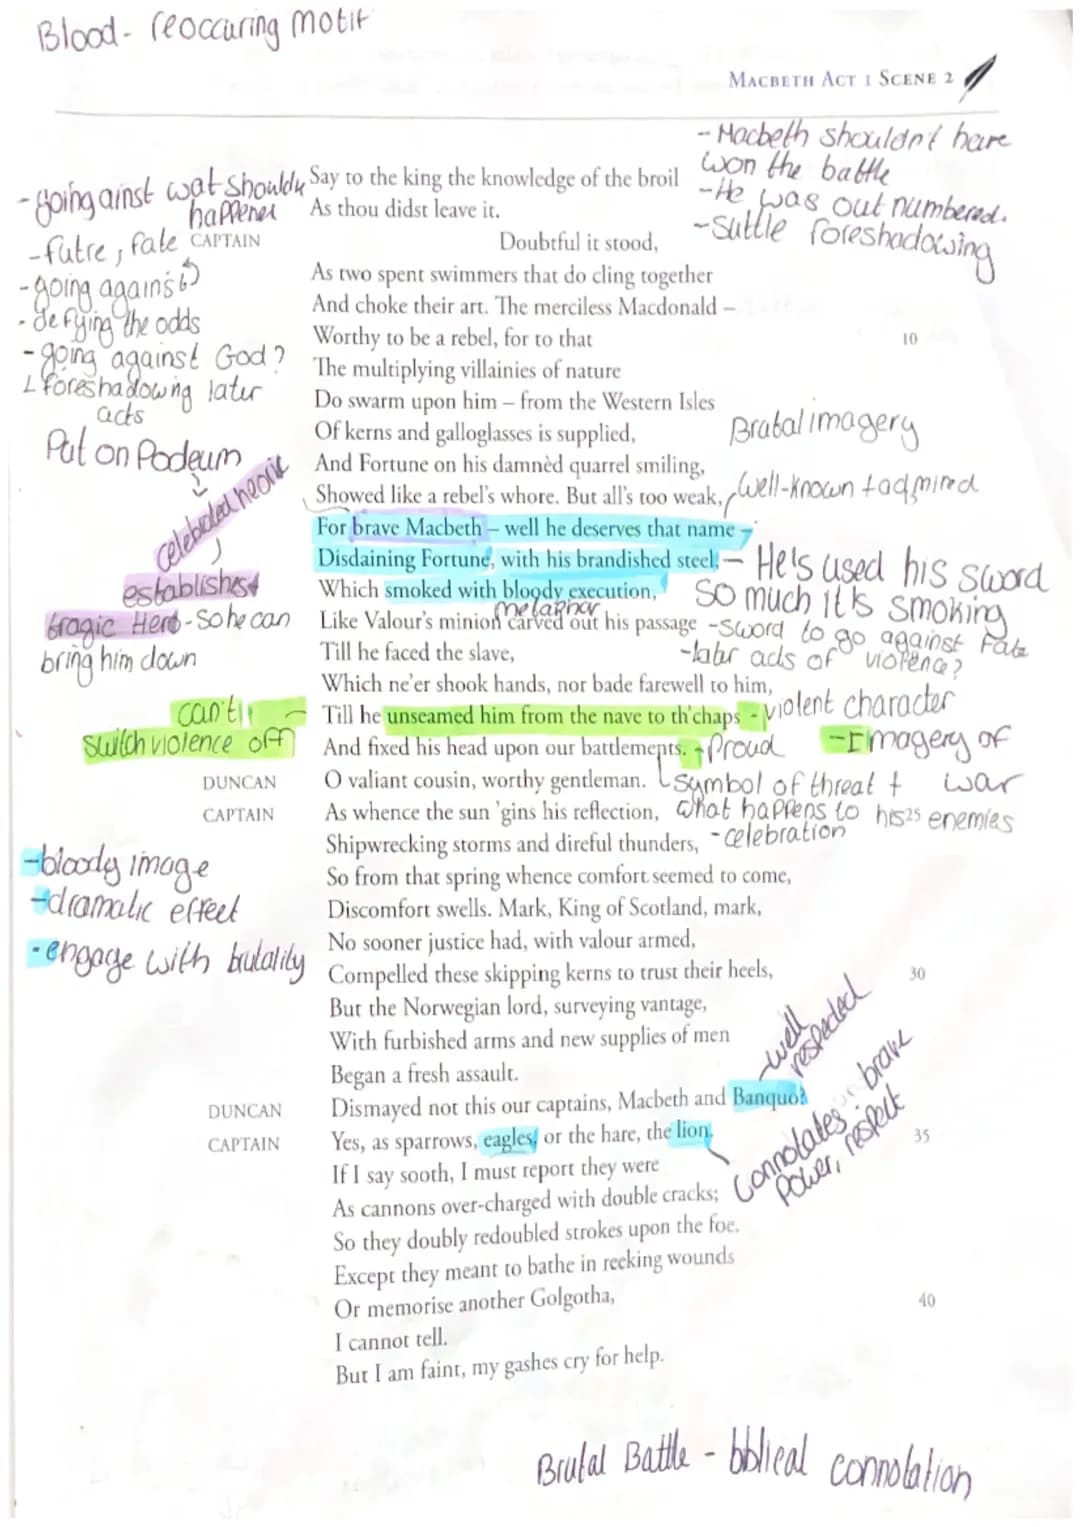 Blood- reoccuring motif
MACBETH ACT 1 SCENE 2
- Macbeth shouldn't have
won the battle
-He was out numbered.
-Suttle foreshadowing
-going ainst wat shouldv
happened
-futre, fate
-going against
- defying the odds
- going against God?
L foreshadowing later
acts
Put on Podeum
celebrated heoric
establishes
tragic Hero -So he can
bring him down
can't
switch violence off
-bloody image
-dramatic effect
-engage with brutality
Say to the king the knowledge of the broil
As thou didst leave it.
CAPTAIN Doubtful it stood,
As two spent swimmers that do cling together
And choke their art. The merciless Macdonald –
Worthy to be a rebel, for to that 10
The multiplying villainies of nature
Do swarm upon him – from the Western Isles
Of kerns and galloglasses is supplied,
And Fortune on his damnèd quarrel smiling,
Showed like a rebel's whore. But all's too weak,
For brave Macbeth – well he deserves that name –
Disdaining Fortune, with his brandished steel,
Which smoked with bloody execution,
metaphor
Like Valour's minion carved out his passage
Till he faced the slave,
Which ne'er shook hands, nor bade farewell to him,
Till he unseamed him from the nave to th'chaps
And fixed his head upon our battlements.
DUNCAN O valiant cousin, worthy gentleman.
CAPTAIN As whence the sun 'gins his reflection, 25
Shipwrecking storms and direful thunders,
So from that spring whence comfort seemed to come,
Discomfort swells. Mark, King of Scotland, mark,
No sooner justice had, with valour armed,
Compelled these skipping kerns to trust their heels, 30
But the Norwegian lord, surveying vantage,
With furbished arms and new supplies of men
Began a fresh assault.
DUNCAN Dismayed not this our captains, Macbeth and Banquo?
CAPTAIN Yes, as sparrows, eagles, or the hare, the lion. 35
If I say sooth, I must report they were
As cannons over-charged with double cracks;
So they doubly redoubled strokes upon the foe.
Except they meant to bathe in reeking wounds
Or memorise another Golgotha, 40
I cannot tell.
But I am faint, my gashes cry for help.
Brutal imagery
well-known + admired
- He's used his sword
so much it's smoking
-sword to go against fate
-later acts of violence?
- violent character
- Proud
-Imagery of
war
symbol of threat +
what happens to his enemies
-celebration
-well
respected
connotates: brave
power, respect
Brutal Battle - bblical connotation